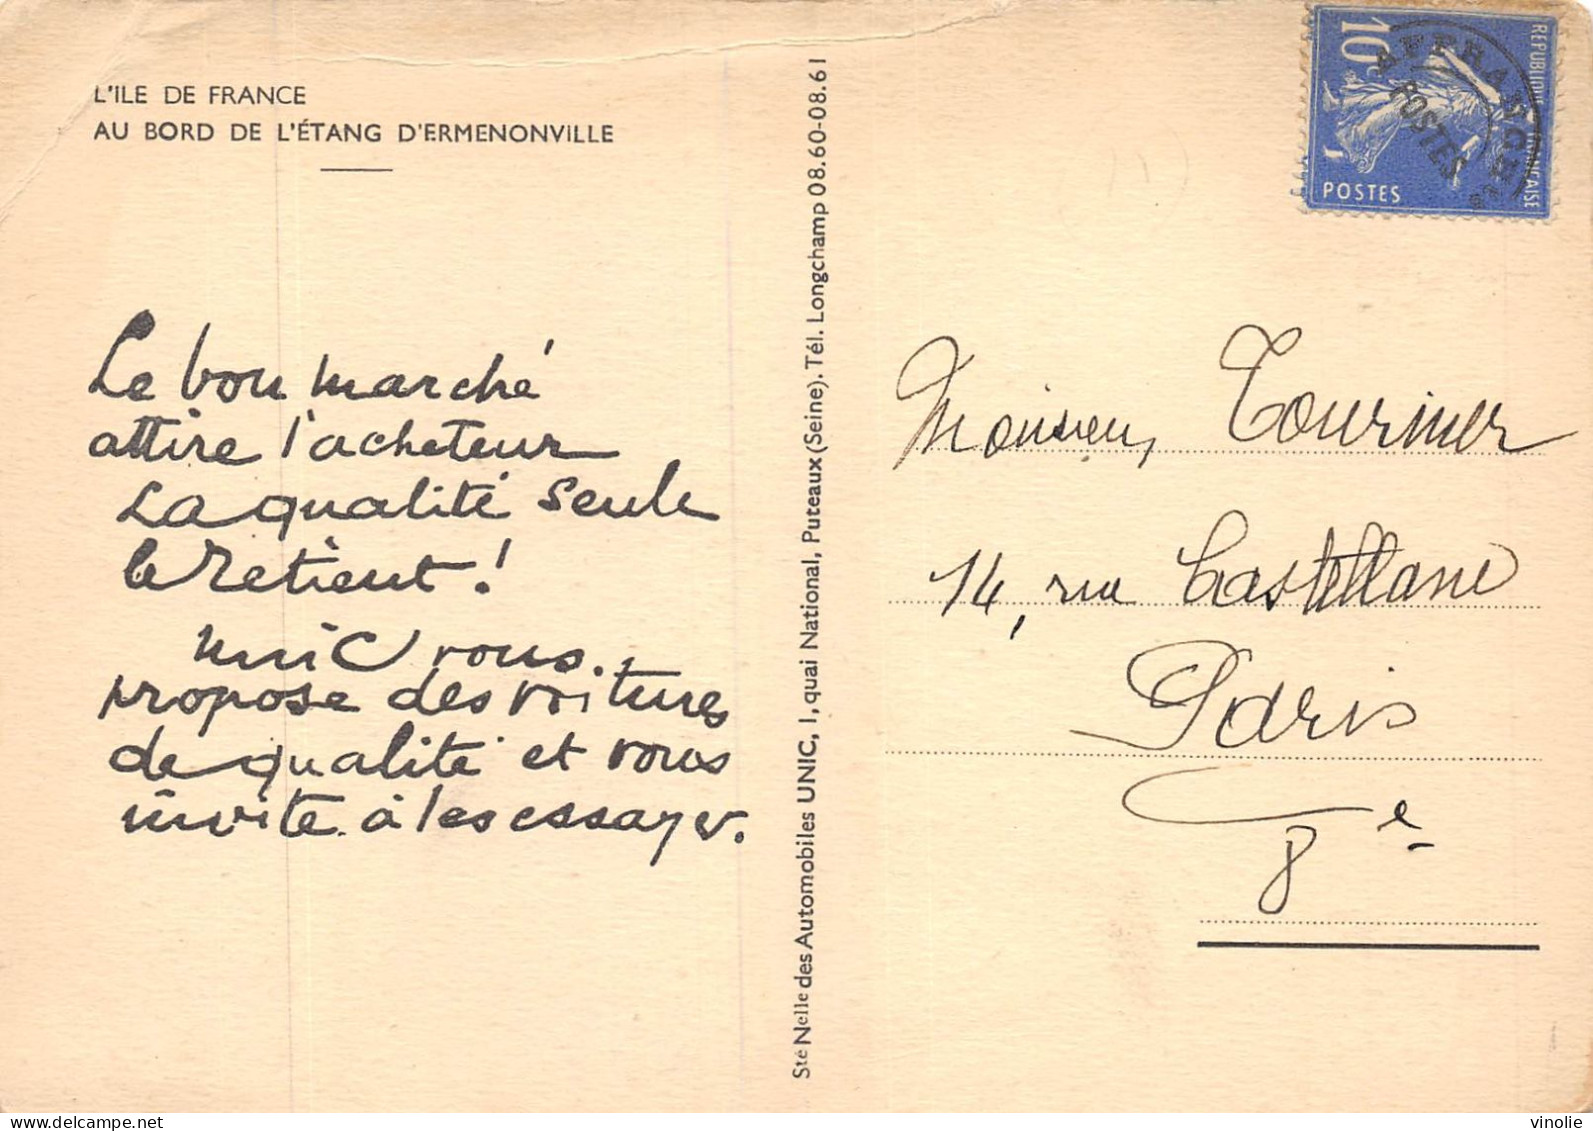 L'ILE DE FRANCE
AU BORD DE L'ÉTANG D'ERMENONVILLE
Le bon marché
attire l'acheteur
La qualité seule
le retient !
UniC vous
propose des voitures
de qualité et vous
invite à les essayer.
Sté Nelle des Automobiles UNIC, 1, quai National, Puteaux (Seine). Tél. Longchamp 08.60-08.61
10c
REPUBLIQUE FRANÇAISE
POSTES
AFFRANCHts
POSTES
Monsieur Tournier
14, rue Castellane
Paris
8e
delcampe.net
vinolie